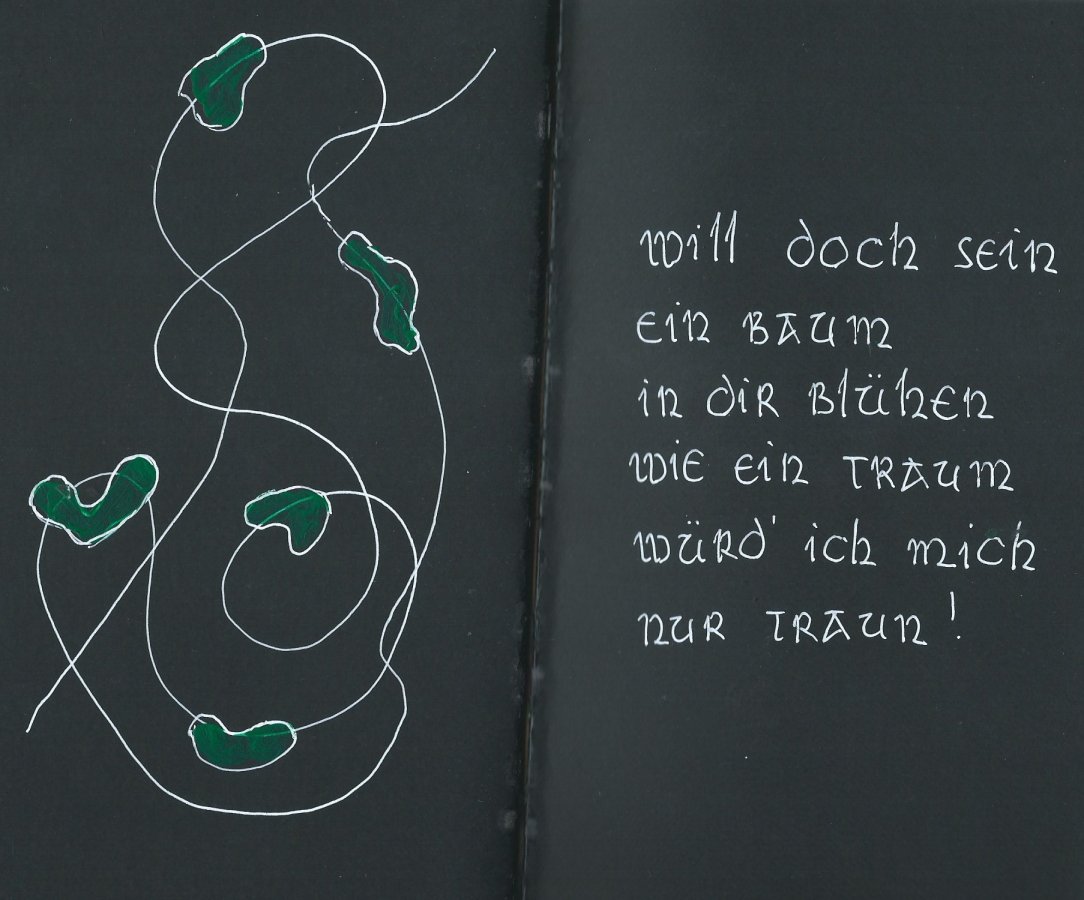 will doch sein
ein Baum
in dir blühen
wie ein Traum
würd' ich mich
nur traun!